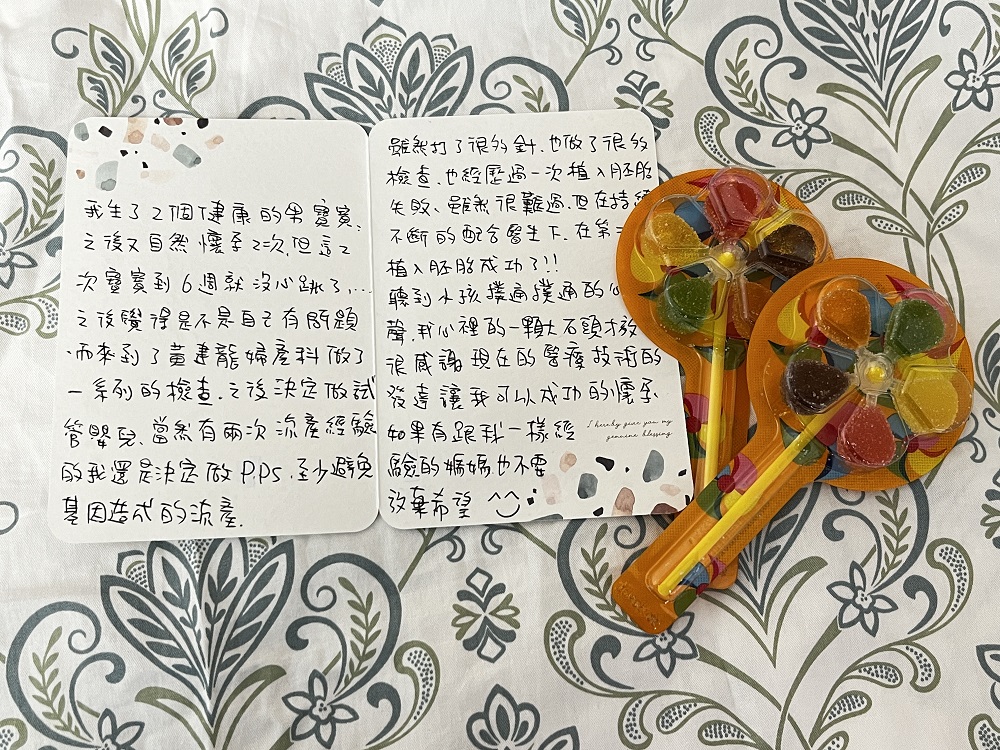 我生了2個健康的男寶寶、
之後又自然懷孕2次,但這2
次寶寶到6週就沒心跳了,...
之後覺得是不是自己有問題
,而來到了黃建龍婦產科做了
一系列的檢查.之後決定做試
管嬰兒、當然有兩次流產經驗
的我還是決定做P.P.D.S,至少避免
基因造成的流產.
雖然打了很多針.也做了很多
檢查.也經歷過一次植入胚胎
失敗、雖然很難過.但在持續
不斷的配合醫生下.在第二
植入胚胎成功了!!
聽到小孩撲通撲通的心
聲,我心裡的一顆大石頭才放
很感謝現在的醫療技術的
發達讓我可以成功的懷孕
如果有跟我一樣經
驗的媽媽也不要
放棄希望 ^^
I hereby give you my
genuine blessing